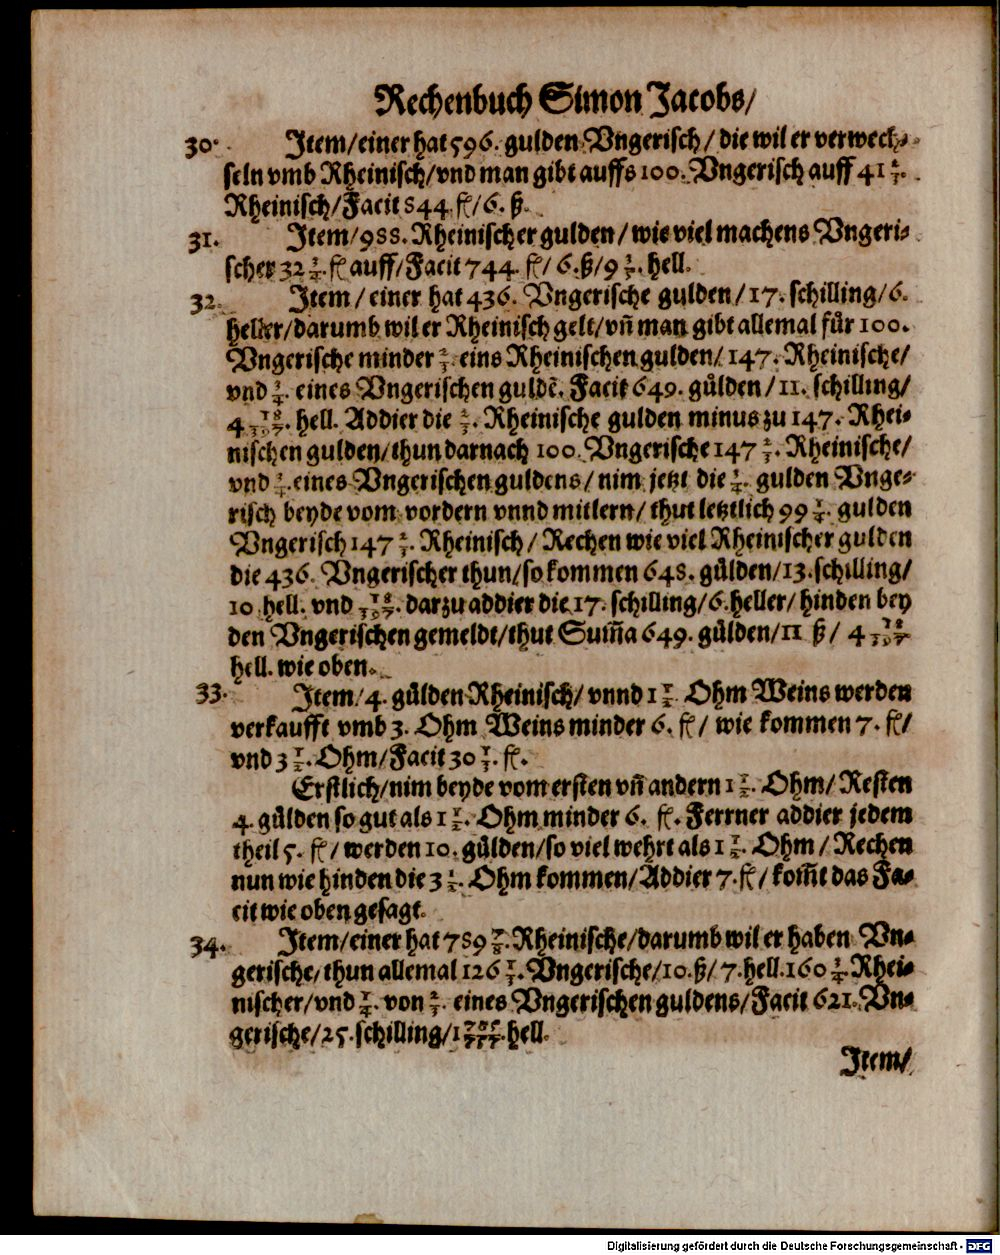 Rechenbuch Simon Jacobs/
30. Item/einer hat 596. gulden Vngerisch/ die wil er verwech⸗
seln vmb Rheinisch/vnd man gibt auffs 100. Vngerisch auff 41 2/3.
Rheinisch/Facit 844 fl/6. ß.
31. Item/988. Rheinischer gulden/wie viel machens Vngeri⸗
scher 32 3/4. fl auff/Facit 744. fl/6.ß/9 hell.
32. Item/einer hat 436. Vngerische gulden/17. schilling/6.
heller/darumb wil er Rheinisch gelt/vn̄ man gibt allemal fuͤr 100.
Vngerische minder 2/3 eins Rheinischen gulden/147. Rheinische/
vnd 3/4. eines Vngerischen guldē. Facit 649. guͤlden/11. schilling/
4 18/397. hell. Addier die 2/3. Rheinische gulden minus zu 147. Rhei⸗
nischen gulden/thun darnach 100. Vngerische 147 2/3. Rheinische/
vnd 3/4. eines Vngerischen guldens/ nim jetzt die 3/4. gulden Vnge⸗
risch beyde vom vordern vnnd mitlern/ thut letztlich 99 1/4. gulden
Vngerisch 147 2/3. Rheinisch/ Rechen wie viel Rheinischer gulden
die 436. Vngerischer thun/so kommen 648. guͤlden/13.schilling/
10 hell. vnd 18/397. darzu addier die 17. schilling/6.heller/ hinden bey
den Vngerischen gemeldt/thut Sum̄a 649. guͤlden/11 ß/ 4 18/397
hell. wie oben.
33. Item/4. guͤlden Rheinisch/ vnnd 1 1/2 Ohm Weins werden
verkaufft vmb 3. Ohm Weins minder 6. fl/ wie kommen 7. fl/
vnd 3 1/2. Ohm/Facit 30 1/3. fl.
Erstlich/nim beyde vom ersten vn̄ andern 1 1/2. Ohm/ Resten
4. guͤlden so gut als 1 1/2. Ohm minder 6. fl. Ferrner addier jedem
theil 5. fl/ werden 10. guͤlden/so viel wehrt als 1 1/2. Ohm/ Rechen
nun wie hinden die 3 1/2. Ohm kommen/Addier 7.fl/kom̄t das Fa⸗
cit wie oben gesagt.
34. Item/einer hat 789 7/8. Rheinische/darumb wil er haben Vn⸗
gerische/thun allemal 126 1/3. Vngerische/10.ß/7.hell.160 3/4. Rhei⸗
nischer/vnd 1/4. von 2/3. eines Vngerischen guldens/Facit 621. Vn⸗
gerische/25.schilling/1 hell.
Item/
Digitalisierung gefördert durch die Deutsche Forschungsgemeinschaft - DFG